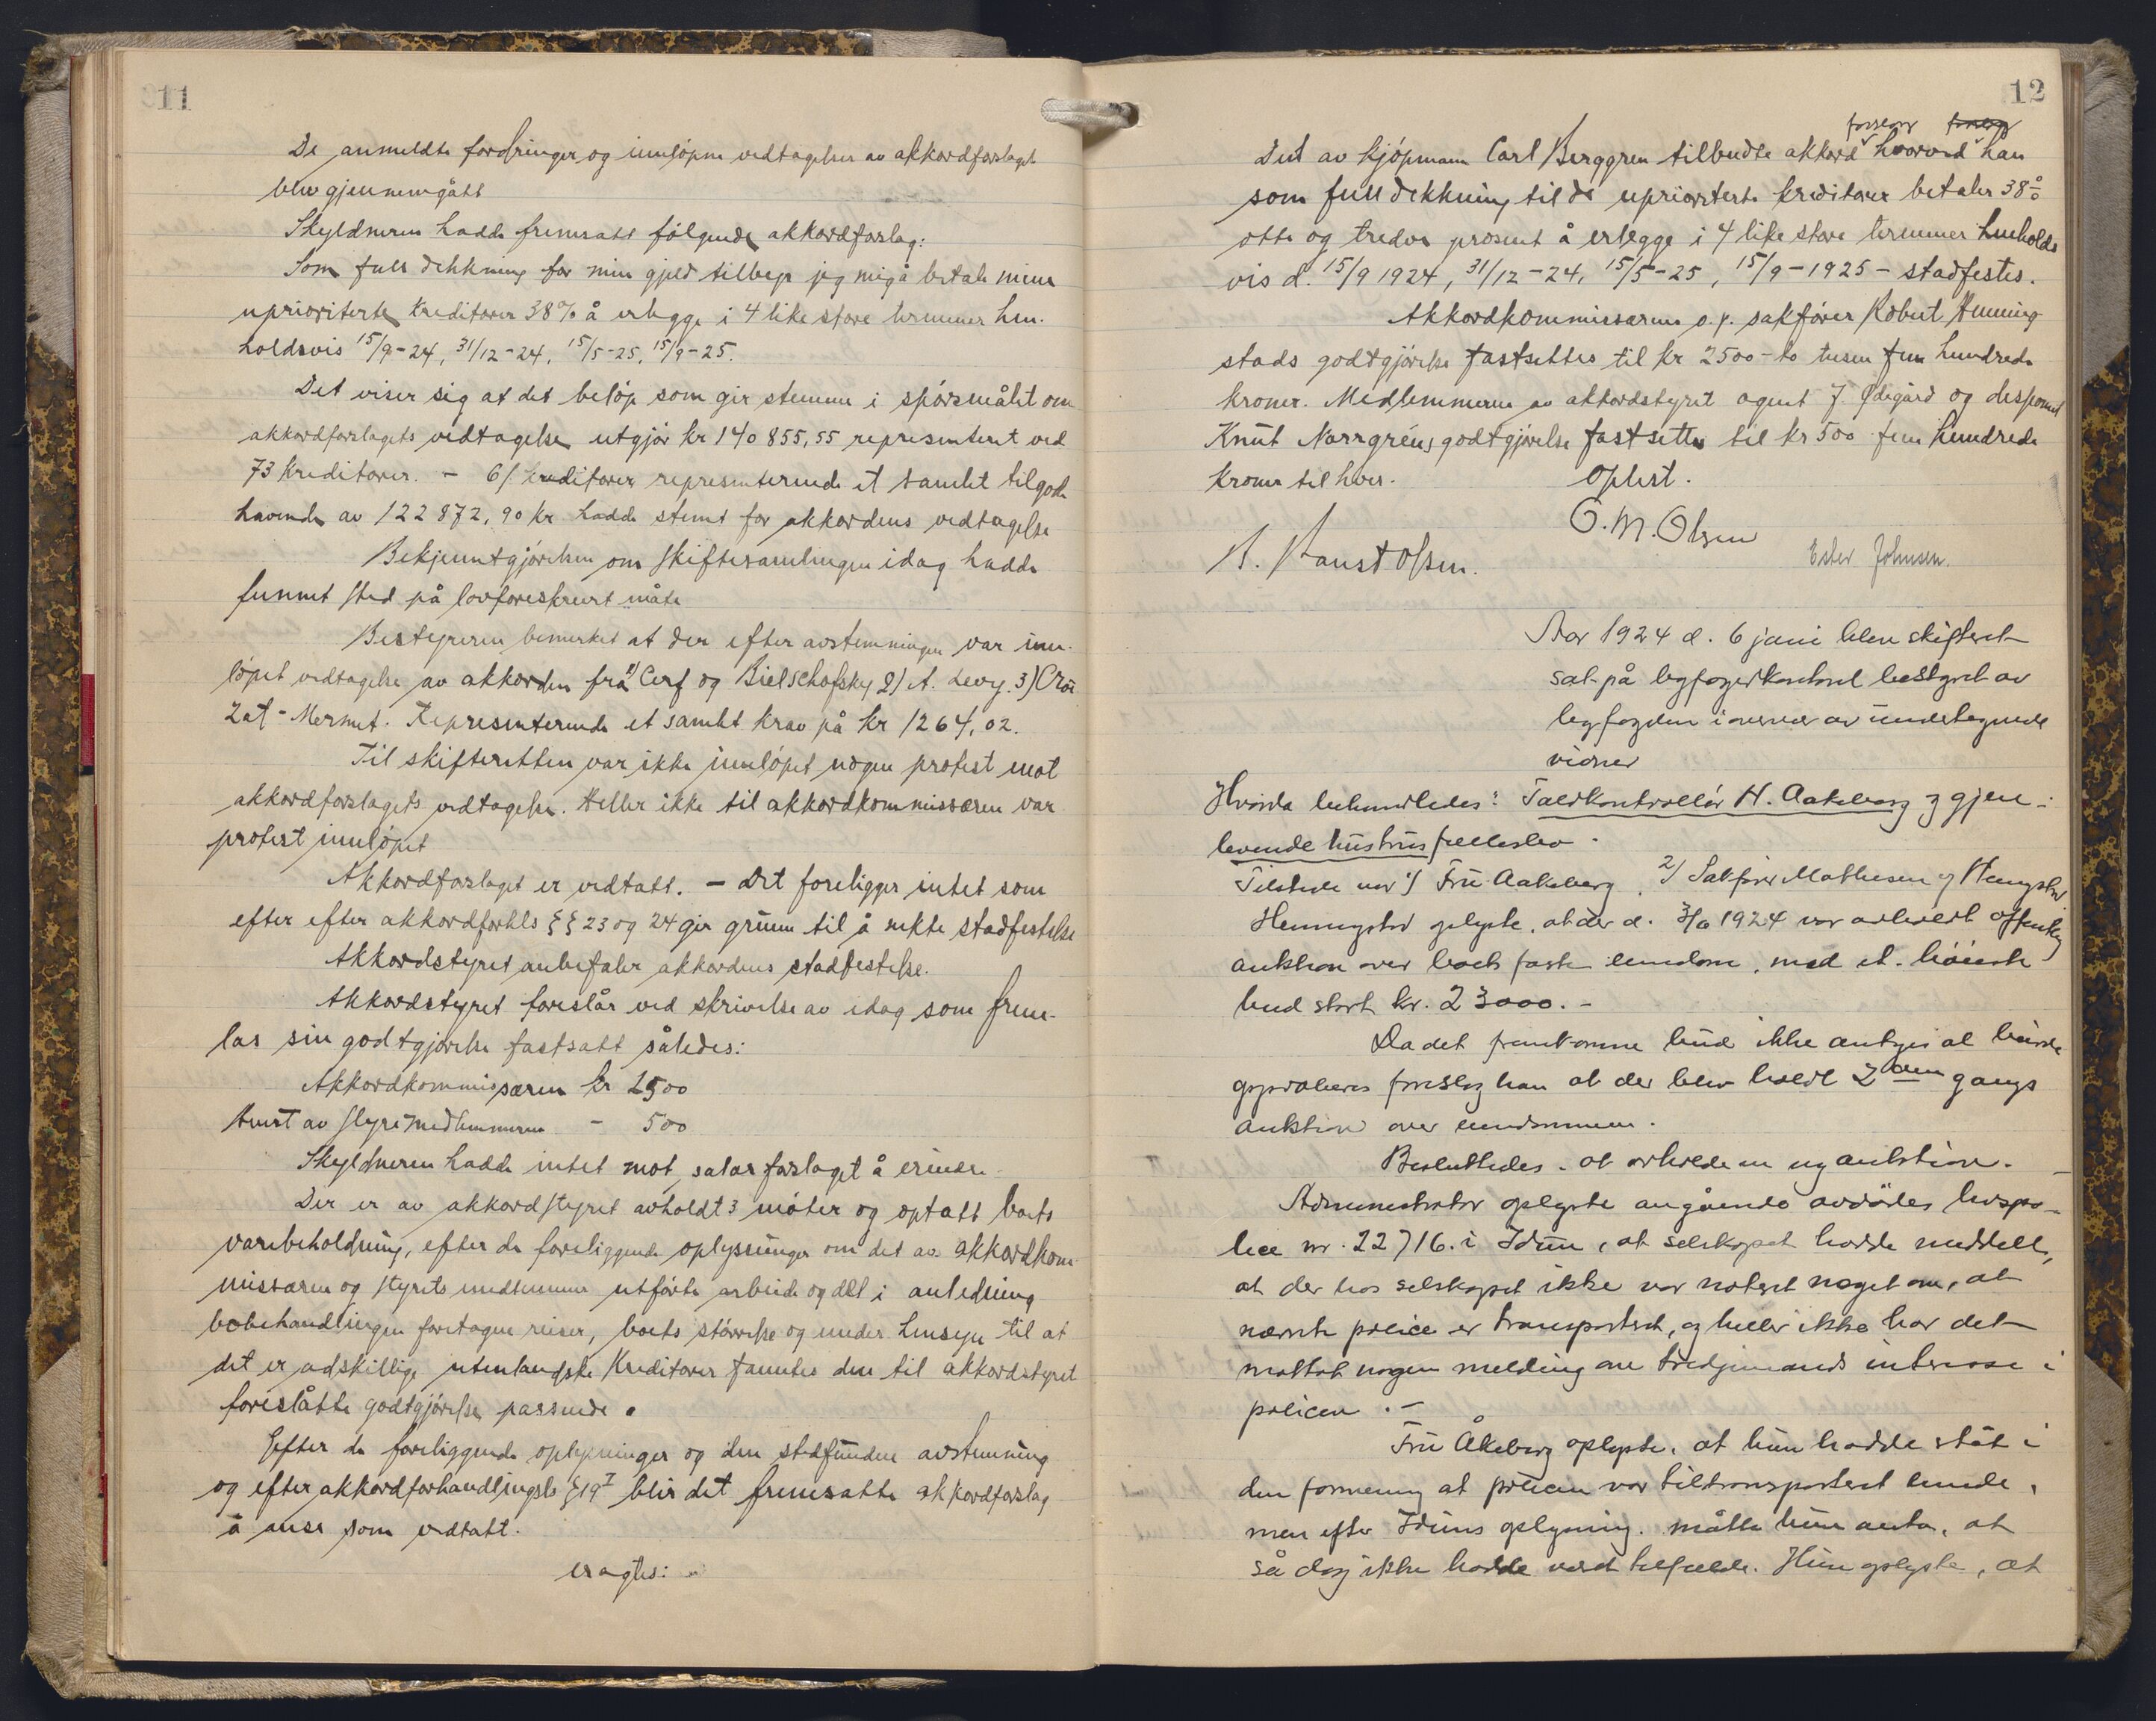 11
De anmeldte fordringer og innløpne vedtagelser av akkordforslaget
blev gjennemgått
Skyldneren hadde fremsatt følgende akkordforslag:
Som full dekkning for min gjeld tilbyr jeg mig å betale mine
uprioriterte kreditorer 38% å erlegge i 4 like store terminer hen-
holdsvis 15/9-24, 31/12-24, 15/5-25, 15/9-25.
Det viser sig at det beløp som gir stemme i spørsmålet om
akkordforslagets vedtagelse utgjør kr 140 855,55 representeret ved
73 kreditorer. - 61 kreditorer representerende et samlet tilgode
havende av 122 872,90 kr hadde stemt for akkordens vedtagelse
Bekjenntgjørelsen om skiftesamlingen idag hadde
funnet sted på lovforeskrevet måte
Bestyreren bemerket at der efter avstemningen var inn-
løpet vedtagelse av akkorden fra 1) Cerf og Bielschofsky 2) A. Levy. 3) Croi
zat-Mermet. Representerende et samlet krav på kr 1264,02.
Til skifteretten var ikke innløpet nogen protest mot
akkordforslagets vedtagelse. Heller ikke til akkordkommissæren var
protest innløpet
Akkordforslaget er vedtatt. - Det foreligger intet som
efter efter akkordforhls §§ 23 og 24 gir grunn til å nekte stadfestelse
Akkordstyret anbefaler akkordens stadfestelse.
Akkordstyret foreslår ved skrivelse av idag som frem-
las sin godtgjørelse fastsatt således:
Akkordkommissæren kr 2500
Hvert av styremedlemmerne - 500
Skyldneren hadde intet mot salærforslaget å erindre.
Der er av akkordstyret avholdt 3 møter og optatt boets
varebeholdning, efter de foreliggende oplysninger om det av akkordkom
missæren og styrets medlemmer utførte arbeide og det i anledning
bobehandlingen foretagne reiser, boets størrelse og under hensyn til at
det er adskillige utenlandske kreditorer fanntes den til akkordstyret
foreslåtte godtgjørelse passende.
Efter de foreliggende oplysninger og den stedfundne avstemning
og efter akkordforhandlingsls §19 I blir det fremsatte akkordforslag
å anse som vedtatt.
eragtes:
12
forslag forslag
Det av kjøpmann Carl Berggren tilbudte akkord hvorved han
som full dekkning til de uprioriterte kreditorer betaler 38%
otte og tredve prosent å erlegge i 4 like store terminer henholds
vis d. 15/9 1924, 31/12-24, 15/5-25, 15/9-1925 - stadfestes.
Akkordkommissærens o.r. sakfører Robert Henning-
stads godtgjørelse fastsettes til kr 2500 - to tusen fem hundrede
kroner. Medlemmerne av akkordstyret agent J. Ødegård og disponent
Knut Norrgréns godtgjørelse fastsettes til kr 500 fem hundrede
kroner til hver.
Oplest.
O. M. Olsen
Ester Johnsen.
Aar 1924 d. 6 juni blev skifteret
sat på byfogedkontoret bestyret av
byfogden i overvær av undertegnede
vidner
Hvorda behandledes: Toldkontrollør H. Aakeberg og gjen-
levende hustrus fellesbo.
Tilstede var 1) Fru Aakeberg, 2) Sakfører Mathesen og Henngstad
Henngstad oplyste, at der d. 3/6 1924 var avholdt offentlig
auktion over boets faste eiendom, med et høieste
bud stort kr. 23000.-
Da det fremkomne bud ikke antages at burde
approberes foreslog han at der blev holdt 2den gangs
auktion over eiendommen.
Besluttedes at avholde en ny auktion.
Administrator oplyste angående avdødes livspo-
lice nr. 22716. i Idun, at selskapet hadde meddelt,
at der hos selskapet ikke var noteret noget om, at
nævnte police er transporteret, og heller ikke har det
mottat nogen melding om tredjemands interesse i
policen.-
Fru Åkeberg oplyste, at hun hadde ståt i
den formening at policen var tiltransporteret hende,
men efter Iduns oplysning måtte hun anta, at
så dog ikke hadde været tilfælde. Hun oplyste, at